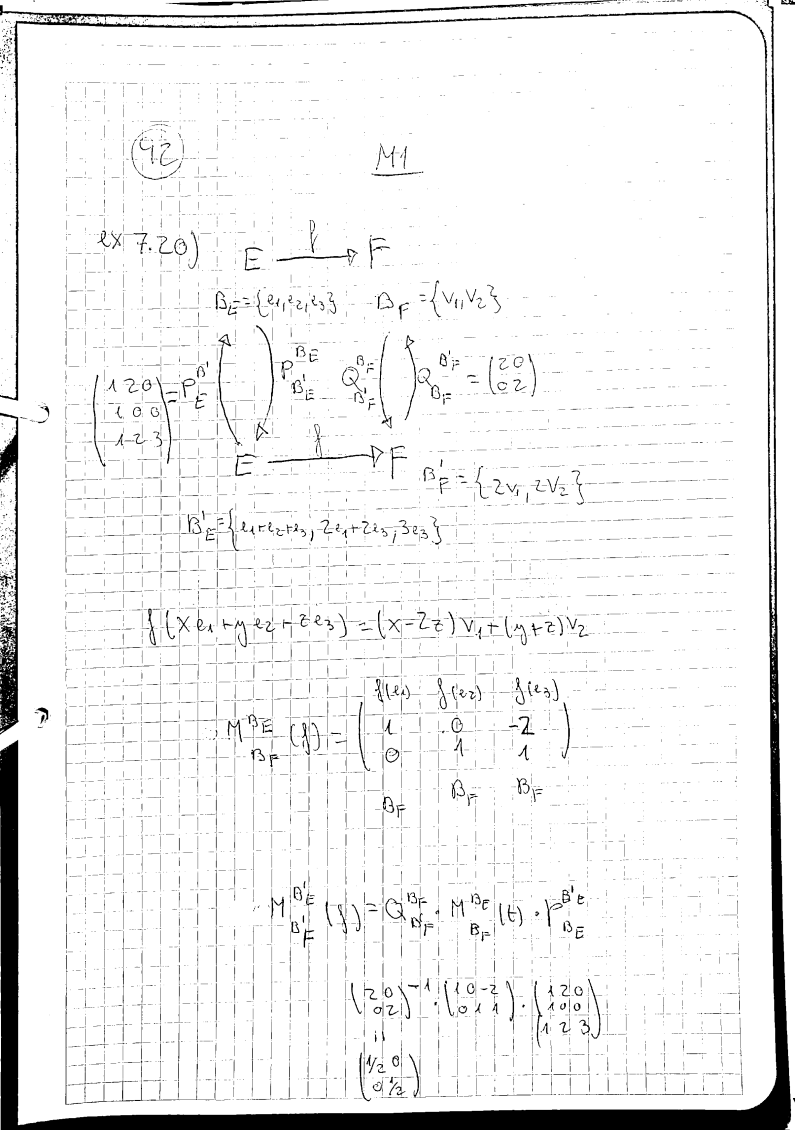 42 M1
ex 7.20) E f F
B_E = {e1, e2, e3} B_F = {v1, v2}
(1 2 0 / 1 0 0 / 1 2 3) = P_E^{B'} P_{B'_E}^{B_E} Q_{B'_F}^{B_F} Q_{B_F}^{B'_F} = (2 0 / 0 2)
E f F B'_F = {2v1, 2v2}
B'_E = {e1+e2+e3, 2e1+2e3, 3e3}
f(x e1 + y e2 + z e3) = (x-2z) v1 + (y+z) v2
f(e1) f(e2) f(e3)
M_{B_F}^{B_E} (f) = (1 0 -2 / 0 1 1)
B_F B_F B_F
M_{B'_F}^{B'_E} (f) = Q_{B'_F}^{B_F} · M_{B_F}^{B_E} (f) · P_{B_E}^{B'_E}
(2 0 / 0 2)^{-1} · (1 0 -2 / 0 1 1) · (1 2 0 / 1 0 0 / 1 2 3)
=
(1/2 0 / 0 1/2)